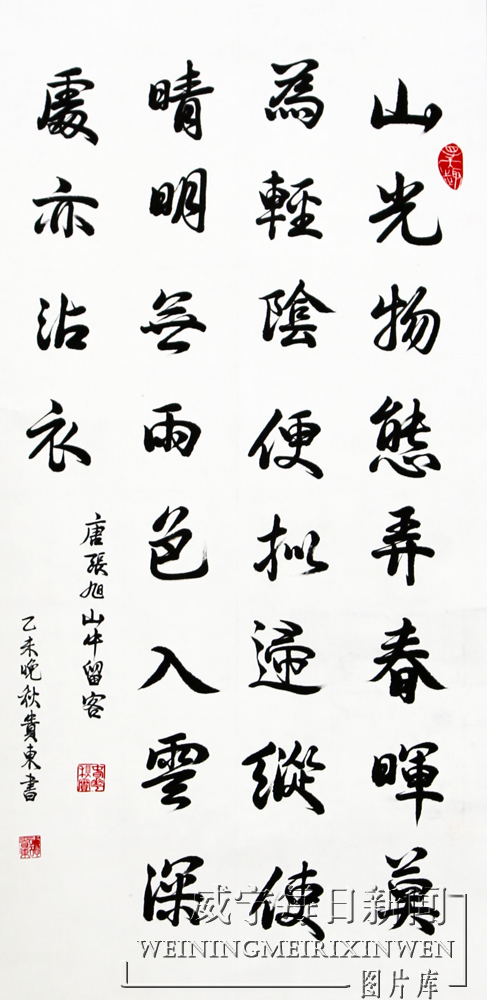 山光物態弄春暉莫
為輕陰便擬歸縱使
晴明無雨色入雲深
處亦沾衣
唐張旭山中留客
乙未晚秋貴東書
威宁每日新闻
WEININGMEIRIXINWEN
图片库